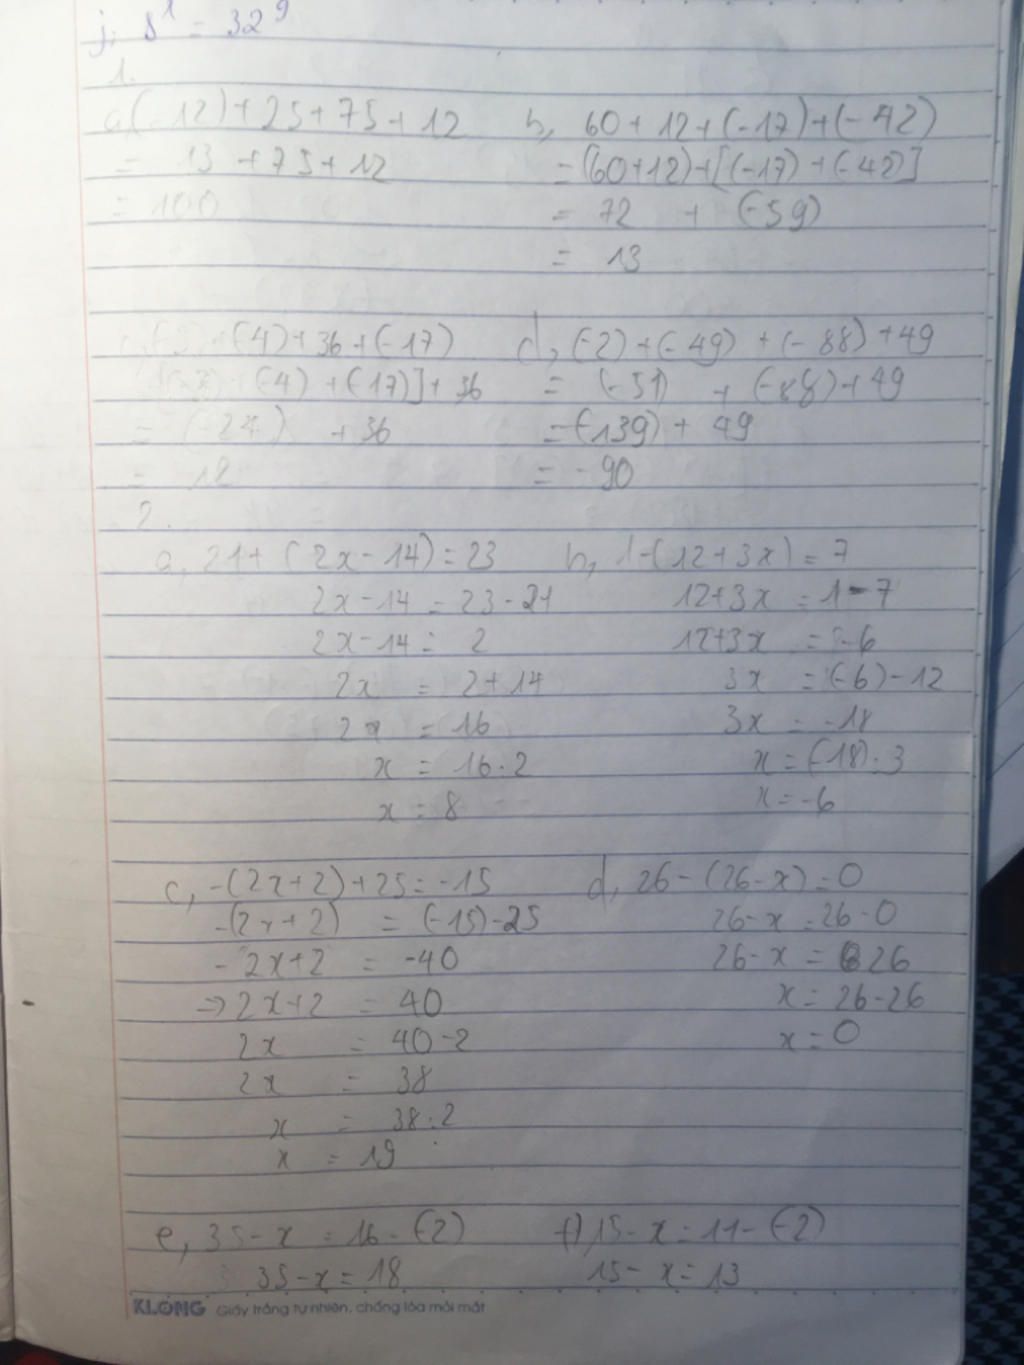 j, 8¹ = 32⁹
1.
a, (-12)+25+75+12
= 13 +75+12
= 100
b, 60+12+(-17)+(-42)
=(60+12)+[(-17)+(-42)]
= 72 + (-59)
= 13
(-4)+36+(-17)
(-4)+(-17)]+36
= (-24) +36
= 12
d, (-2)+(-49)+(-88)+49
= (-51) + (-88)+49
=(-139)+ 49
= -90
2.
a, 21+(2x-14)=23
2x-14 = 23-21
2x-14 = 2
2x = 2+14
2x = 16
x = 16:2
x = 8
b, 1-(12+3x)=7
12+3x = 1-7
12+3x = -6
3x = (-6)-12
3x = -18
x = (-18):3
x = -6
c, -(2x+2)+25=-15
-(2x+2) = (-15)-25
-2x+2 = -40
⇒2x+2 = 40
2x = 40-2
2x = 38
x = 38:2
x = 19
d, 26-(26-x)=0
26-x=26-0
26-x = 26
x = 26-26
x = 0
e, 35-x = 16-(-2)
35-x = 18
f) 15-x=11-(-2)
15-x=13
KLONG Giấy trắng tự nhiên, chống lóa mỏi mắt